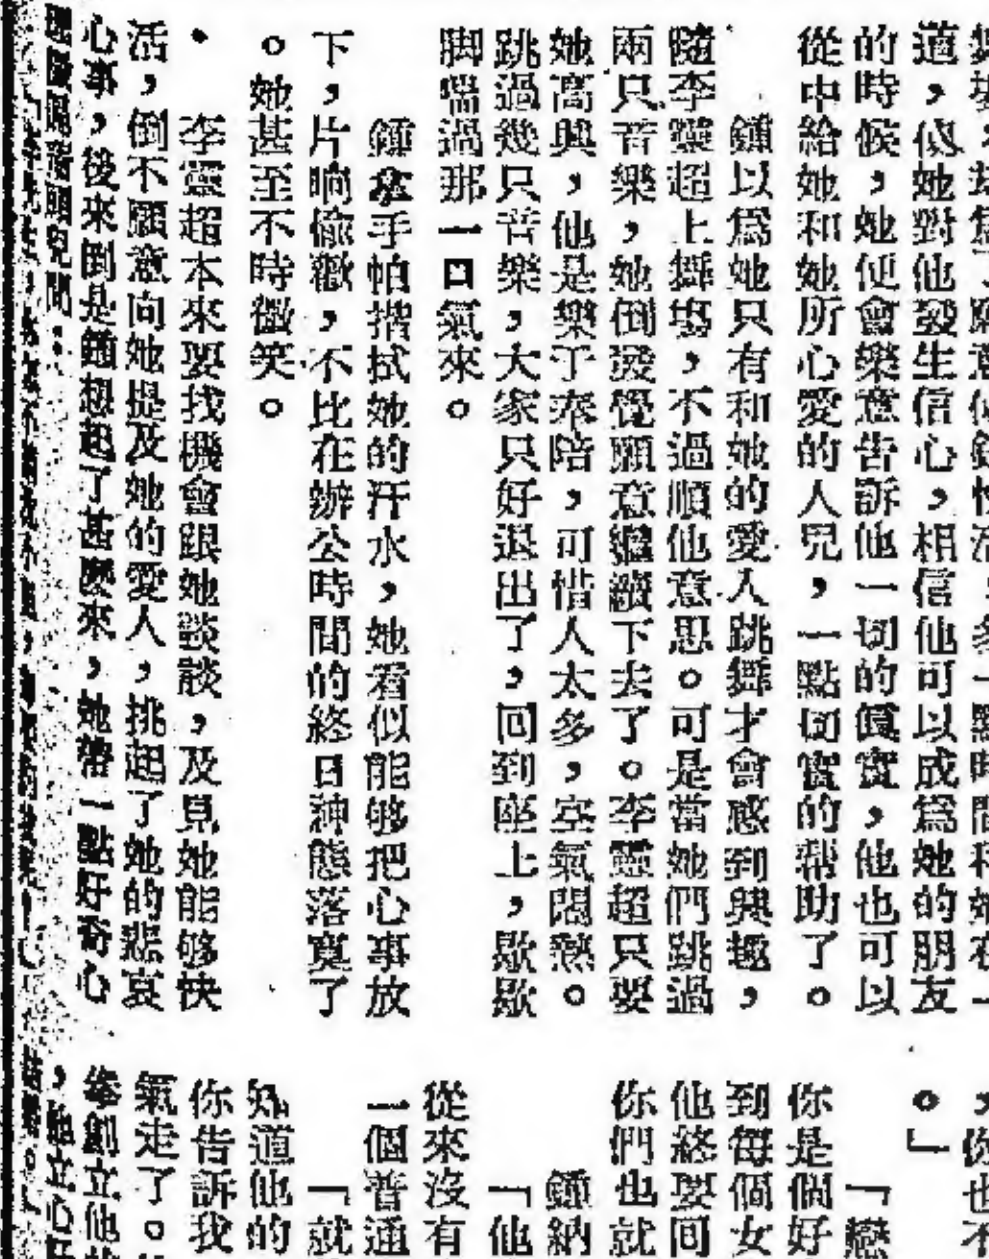 道，似她對他發生信心，相信他可以成爲她的朋友
的時候，她便會樂意告訴他一切的眞實，他也可以
從中給她和她所心愛的人兒，一點切實的帮助了。
鍾以爲她只有和她的愛人跳舞才會感到興趣，
隨李靈超上舞塲，不過順他意思。可是當她們跳過
兩只音樂，她倒發覺願意繼續下去了。李靈超只要
她高興，他是樂于奉陪，可惜人太多，空氣悶熱。
跳過幾只音樂，大家只好退出了，回到座上，歇歇
脚喘過那一口氣來。
鍾拿手帕揩拭她的汗水，她看似能够把心事放
下，片晌偷歡，不比在辦公時間的終日神態落寞了
。她甚至不時微笑。
李靈超本來要找機會跟她談談，及見她能够快
活，倒不願意向她提及她的愛人，挑起了她的悲哀
心事，後來倒是鍾想起了甚麽來，她帶一點好奇心
，你也不
。」
「戀
你是個好
到每個女
他終要回
你們也就
鍾納
「他
從來沒有
一個普通
「就
知道他的
你告訴我
氣走了。
創立他的